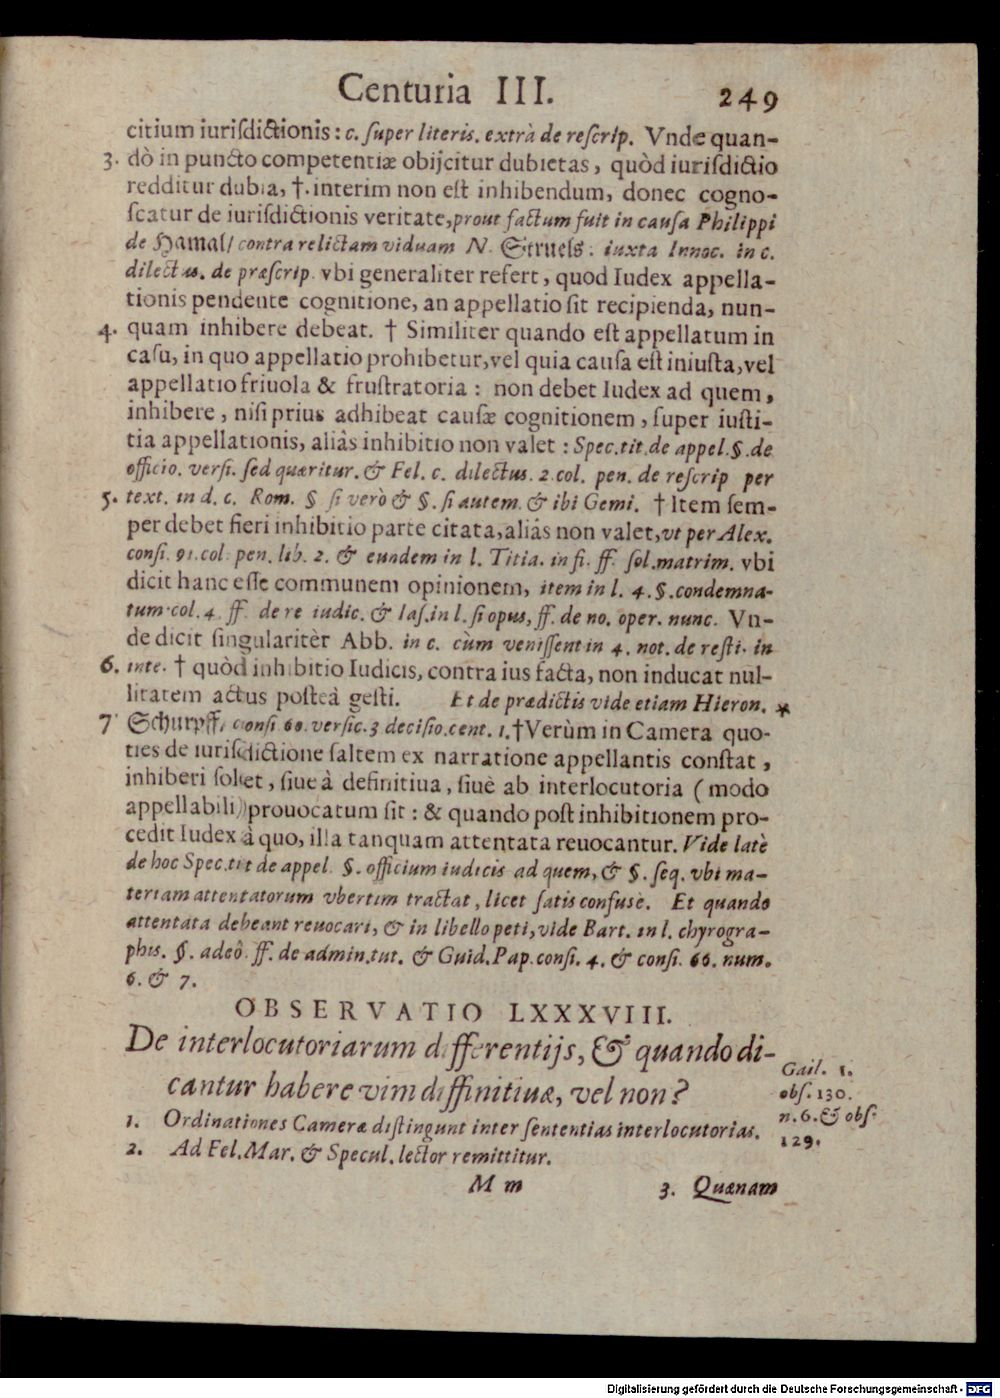 Centuria III. 249
citium iuriſdictionis : c. ſuper literis. extrà de reſcrip. Vnde quan-
3. dò in puncto competentiæ obijcitur dubietas, quòd iuriſdictio
redditur dubia, †. interim non eſt inhibendum, donec cogno-
ſcatur de iuriſdictionis veritate, prout factum fuit in cauſa Philippi
de Hamal/ contra relictam viduam N. Struels: iuxta Innoc. in c.
dilectus. de præſcrip. vbi generaliter refert, quod Iudex appella-
tionis pendente cognitione, an appellatio ſit recipienda, nun-
4. quam inhibere debeat. † Similiter quando eſt appellatum in
caſu, in quo appellatio prohibetur, vel quia cauſa eſt iniuſta, vel
appellatio friuola & fruſtratoria : non debet Iudex ad quem,
inhibere, niſi prius adhibeat cauſæ cognitionem, ſuper iuſti-
tia appellationis, aliâs inhibitio non valet : Spec. tit. de appel. §. de
officio. verſi. ſed quæritur. & Fel. c. dilectus. 2. col. pen. de reſcrip per
5. text. in d. c. Rom. § ſi verò & §. ſi autem. & ibi Gemi. † Item ſem-
per debet fieri inhibitio parte citata, aliâs non valet, vt per Alex.
conſi. 91. col. pen. lib. 2. & eundem in l. Titia. in fi. ff. ſol. matrim. vbi
dicit hanc eſſe communem opinionem, item in l. 4. §. condemna-
tum. col. 4. ff. de re iudic. & Iaſ. in l. ſi opus, ff. de no. oper. nunc. Vn-
de dicit ſingularitèr Abb. in c. cùm veniſſent in 4. not. de reſti. in
6. inte. † quòd inhibitio Iudicis, contra ius facta, non inducat nul-
litatem actus poſteà geſti. Et de prædictis vide etiam Hieron. *
7 Schurpff, conſi 60. verſic. 3 deciſio. cent. 1. † Verùm in Camera quo-
ties de iuriſdictione ſaltem ex narratione appellantis conſtat,
inhiberi ſolet, ſiue à definitiua, ſiuè ab interlocutoria (modo
appellabili) prouocatum ſit : & quando poſt inhibitionem pro-
cedit Iudex à quo, illa tanquam attentata reuocantur. Vide latè
de hoc Spec. tit de appel. §. officium iudicis ad quem, & §. ſeq. vbi ma-
teriam attentatorum vbertim tractat, licet ſatis confusè. Et quando
attentata debeant reuocari, & in libello peti, vide Bart. in l. chyrogra-
phis. §. adeô. ff. de admin. tut. & Guid. Pap. conſi. 4. & conſi. 66. num.
6. & 7.
OBSERVATIO LXXXVIII.
De interlocutoriarum differentijs, & quando di-
cantur habere vim diffinitiuæ, vel non?
Gail. 1.
obſ. 130.
n. 6. & obſ.
129.
1. Ordinationes Cameræ diſtingunt inter ſententias interlocutorias.
2. Ad Fel. Mar. & Specul. lector remittitur.
M m 3. Quænam
Digitalisierung gefördert durch die Deutsche Forschungsgemeinschaft - DFG